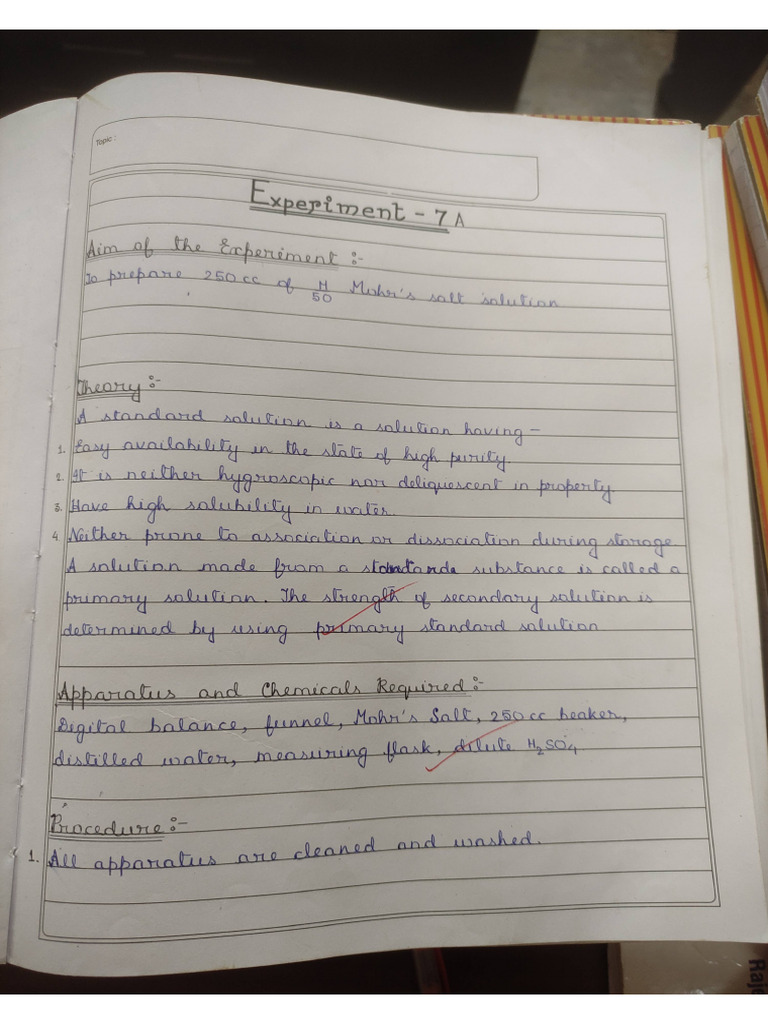 Topic :
Experiment - 7A
Aim of the Experiment :-
To prepare 250 cc of M/50 Mohr's salt solution
Theory :-
A standard solution is a solution having -
1. Easy availability in the state of high purity.
2. It is neither hygroscopic nor deliquescent in property.
3. Have high solubility in water.
4 Neither prone to association or dissociation during storage.
A solution made from a substance is called a
primary solution. The strength of secondary solution is
determined by using primary standard solution
Apparatus and Chemicals Required :-
Digital balance, funnel, Mohr's Salt, 250 cc beaker,
distilled water, measuring flask, dilute H₂SO₄
Procedure :-
1. All apparatus are cleaned and washed.
Raje